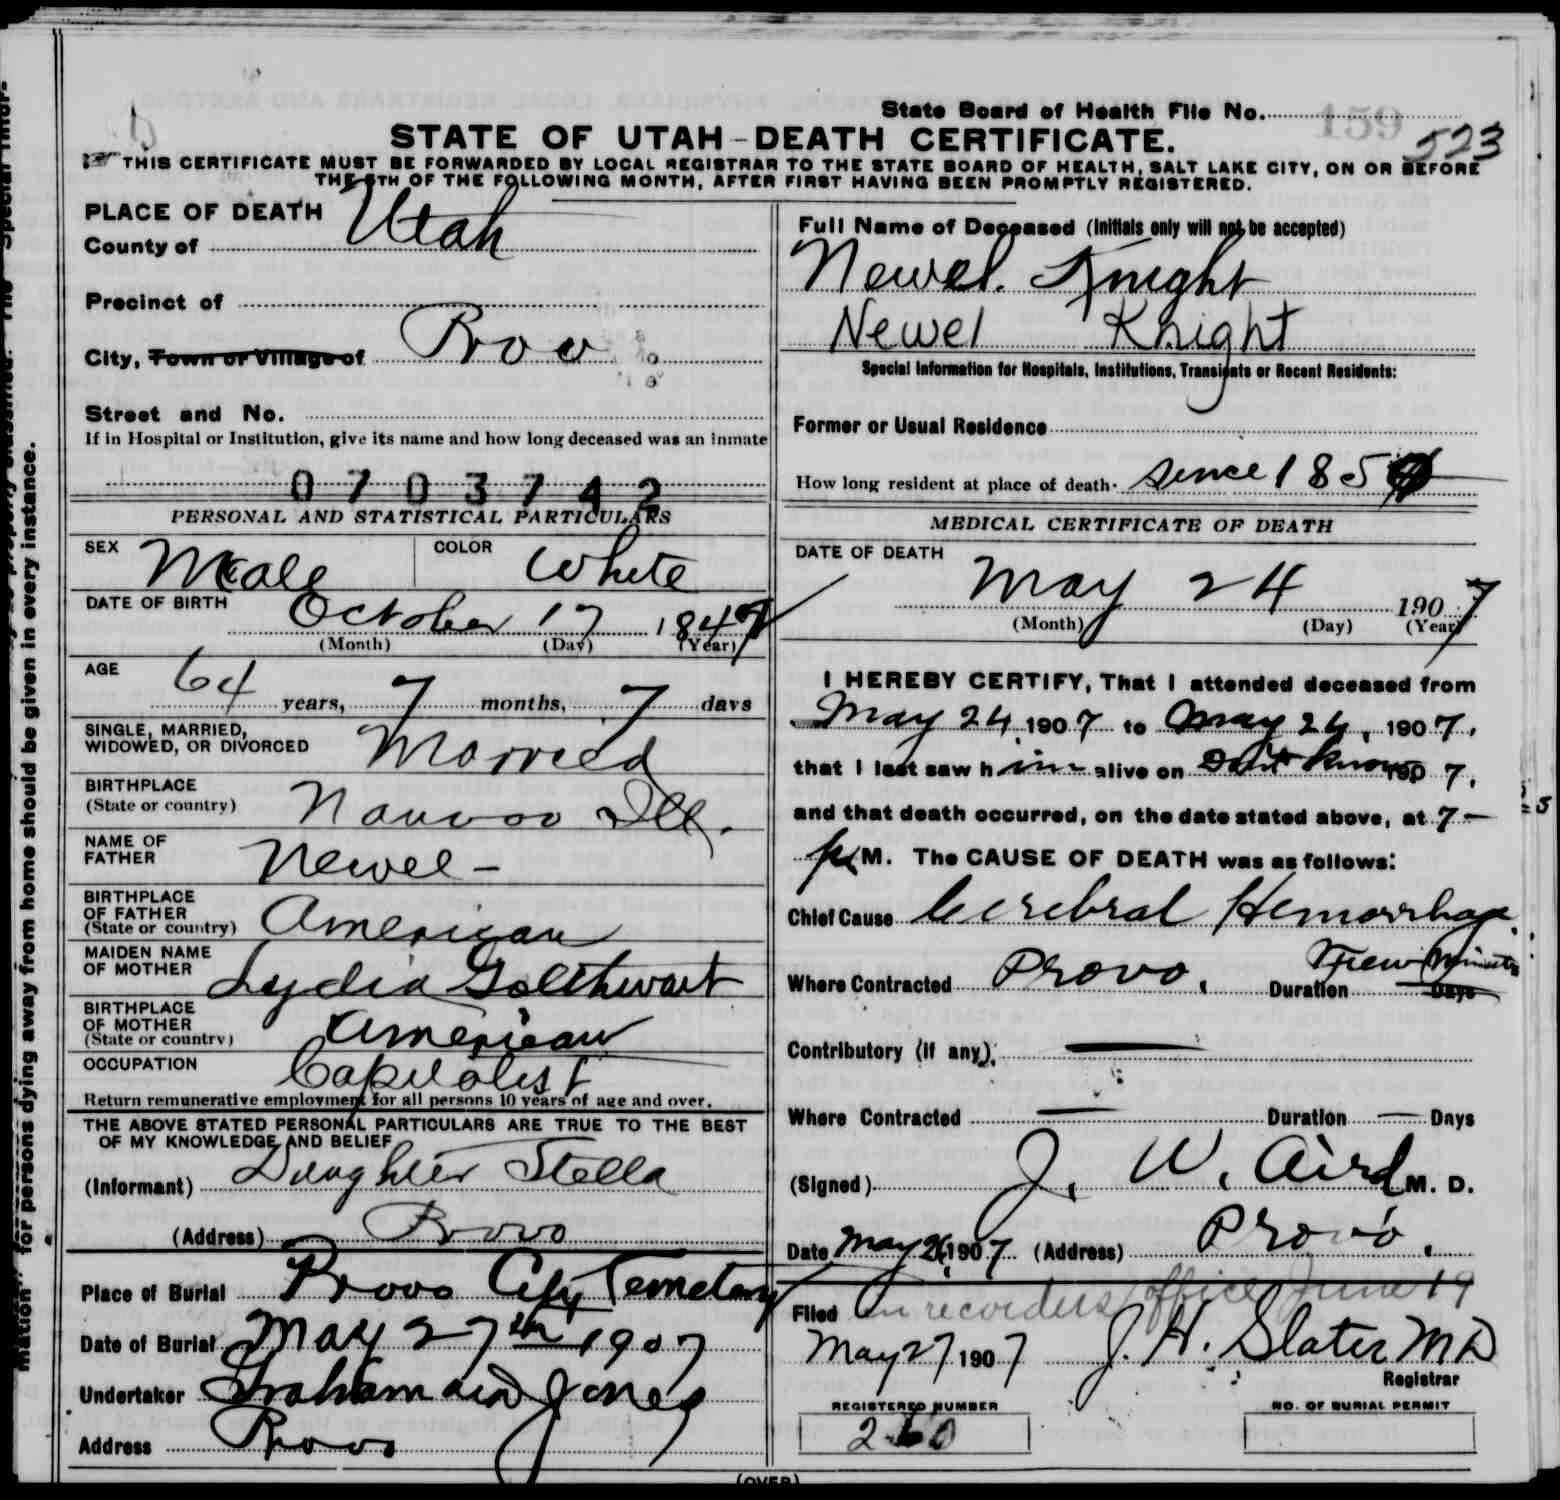 State Board of Health File No. 159
523
STATE OF UTAH-DEATH CERTIFICATE.
THIS CERTIFICATE MUST BE FORWARDED BY LOCAL REGISTRAR TO THE STATE BOARD OF HEALTH, SALT LAKE CITY, ON OR BEFORE
THE 5TH OF THE FOLLOWING MONTH, AFTER FIRST HAVING BEEN PROMPTLY REGISTERED.
PLACE OF DEATH
County of Utah
Precinct of
City, Town or Village of Provo
Street and No.
If in Hospital or Institution, give its name and how long deceased was an inmate
0703742
PERSONAL AND STATISTICAL PARTICULARS
SEX Male COLOR White
DATE OF BIRTH October 17 1847
(Month) (Day) (Year)
AGE 64 years, 7 months, 7 days
SINGLE, MARRIED,
WIDOWED, OR DIVORCED Married
BIRTHPLACE
(State or country) Nauvoo Ill.
NAME OF
FATHER Newel -
BIRTHPLACE
OF FATHER
(State or country) American
MAIDEN NAME
OF MOTHER Lydia Golthwart
BIRTHPLACE
OF MOTHER
(State or country) American
OCCUPATION Capitalist
Return remunerative employment for all persons 10 years of age and over.
THE ABOVE STATED PERSONAL PARTICULARS ARE TRUE TO THE BEST
OF MY KNOWLEDGE AND BELIEF
(Informant) Daughter Stella
(Address) Provo
Place of Burial Provo City Cemetery
Date of Burial May 27th 1907
Undertaker Graham and Jones
Address Provo
Full Name of Deceased (Initials only will not be accepted)
Newel. Knight
Newel Knight
Special Information for Hospitals, Institutions, Transients or Recent Residents:
Former or Usual Residence
How long resident at place of death. since 185
MEDICAL CERTIFICATE OF DEATH
DATE OF DEATH
May 24 1907
(Month) (Day) (Year)
I HEREBY CERTIFY, That I attended deceased from
May 24, 1907 to May 24, 1907.
that I last saw him alive on Don't know 190 7.
and that death occurred, on the date stated above, at 7 -
P M. The CAUSE OF DEATH was as follows:
Chief Cause Cerebral Hemorrhage
Where Contracted Provo. Duration Few Minutes Days
Contributory (if any),
Where Contracted Duration Days
(Signed) J. W. Aird M. D.
Date May 26, 1907 (Address) Provo.
Filed In recorders office June 19
May 27 1907 J. H. Slater MD
Registrar
REGISTERED NUMBER
260
NO. OF BURIAL PERMIT
(OVER)
for persons dying away from home should be given in every instance.